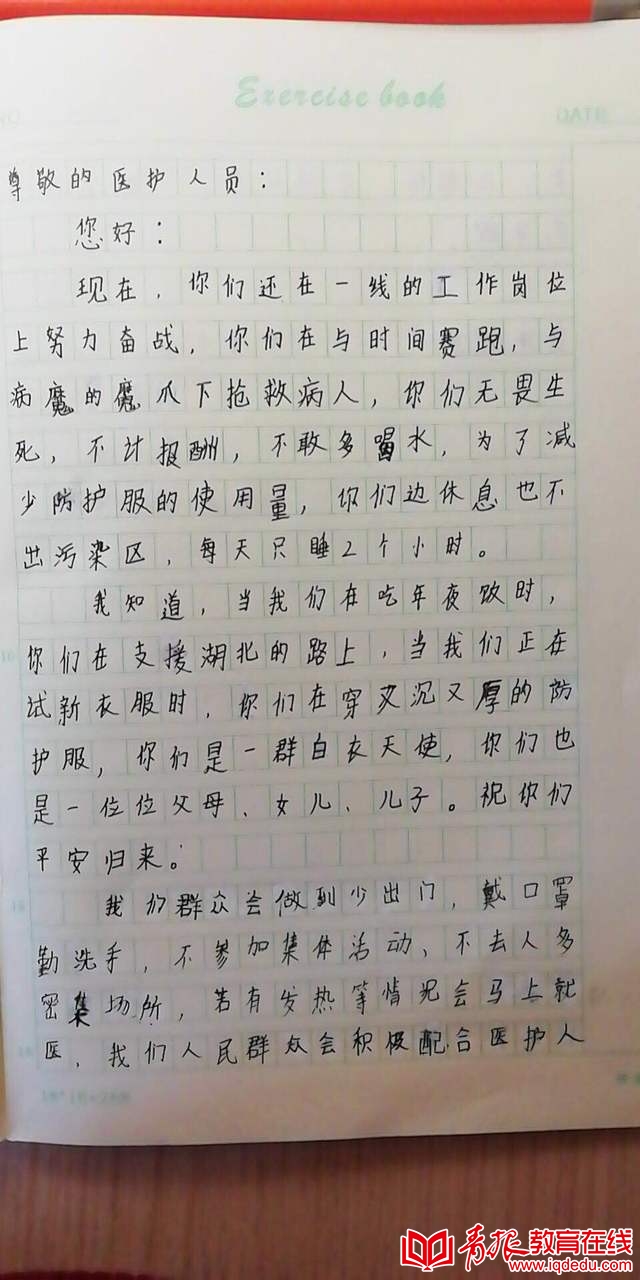 Exercise book
尊敬的医护人员：
您好：
现在，你们还在一线的工作岗位
上努力奋战，你们在与时间赛跑，与
病魔的魔爪下抢救病人，你们无畏生
死，不计报酬，不敢多喝水，为了减
少防护服的使用量，你们边休息也不
出污染区，每天只睡2个小时。
我知道，当我们在吃年夜饭时，
你们在支援湖北的路上，当我们正在
试新衣服时，你们在穿又沉又厚的防
护服，你们是一群白衣天使，你们也
是一位位父母、女儿、儿子。祝你们
平安归来。
我们群众会做到少出门，戴口罩
勤洗手，不参加集体活动、不去人多
密集场所，若有发热等情况会马上就
医，我们人民群众会积极配合医护人
青报教育在线
www.iqdedu.com